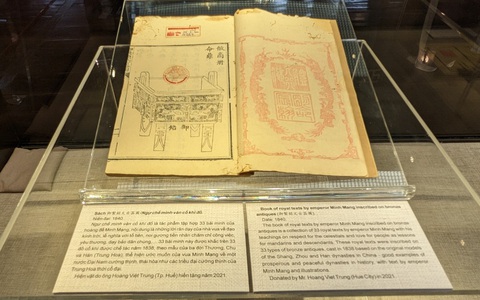 倣商湘
命鼎
御銘
Sách (Ngự chế minh văn cổ khí đồ)
Niên đại: 1840
Ngự chế minh văn cổ khí đồ là tác phẩm tập hợp 33 bài minh của
hoàng đế Minh Mạng, nội dung là những lời răn dạy của nhà vua về đạo
sinh trời, lễ nghĩa với tổ tiên, noi gương tiền nhân chăm chỉ công việc,
yêu thương, dạy bảo dân chúng, ... 33 bài minh này được khắc trên 33
đồ khí được chế tác năm 1838, theo mẫu của ba đời Thương, Chu
và Hán (Trung Hoa), thể hiện ý muốn của vua Minh Mạng về một
nước Đại Nam cường thịnh, thái hòa như các triều đại cường thịnh của
Trung Hoa thời cổ đại.
Hiện vật do ông Hoàng Việt Trung (Tp. Huế) hiến tặng năm 2021.
Book of royal texts by emperor Minh Mang inscribed on bronze
antiques
Date: 1840
The book of royal texts by emperor Minh Mang inscribed on bronze
antiques is a collection of 33 royal texts by emperor Minh Mang with his
teachings on respect for the ancestors and love for people as lessons
for mandarins and descendants. These royal texts were inscribed on
33 types of bronze antiques, cast in 1838 based on the original models
of the Shang, Zhou and Han dynasties in China - good examples of
prosperous and peaceful dynasties in history, with text by emperor
Minh Mang and illustrations.
Donated by Mr. Hoang Viet Trung (Hue City) in 2021.